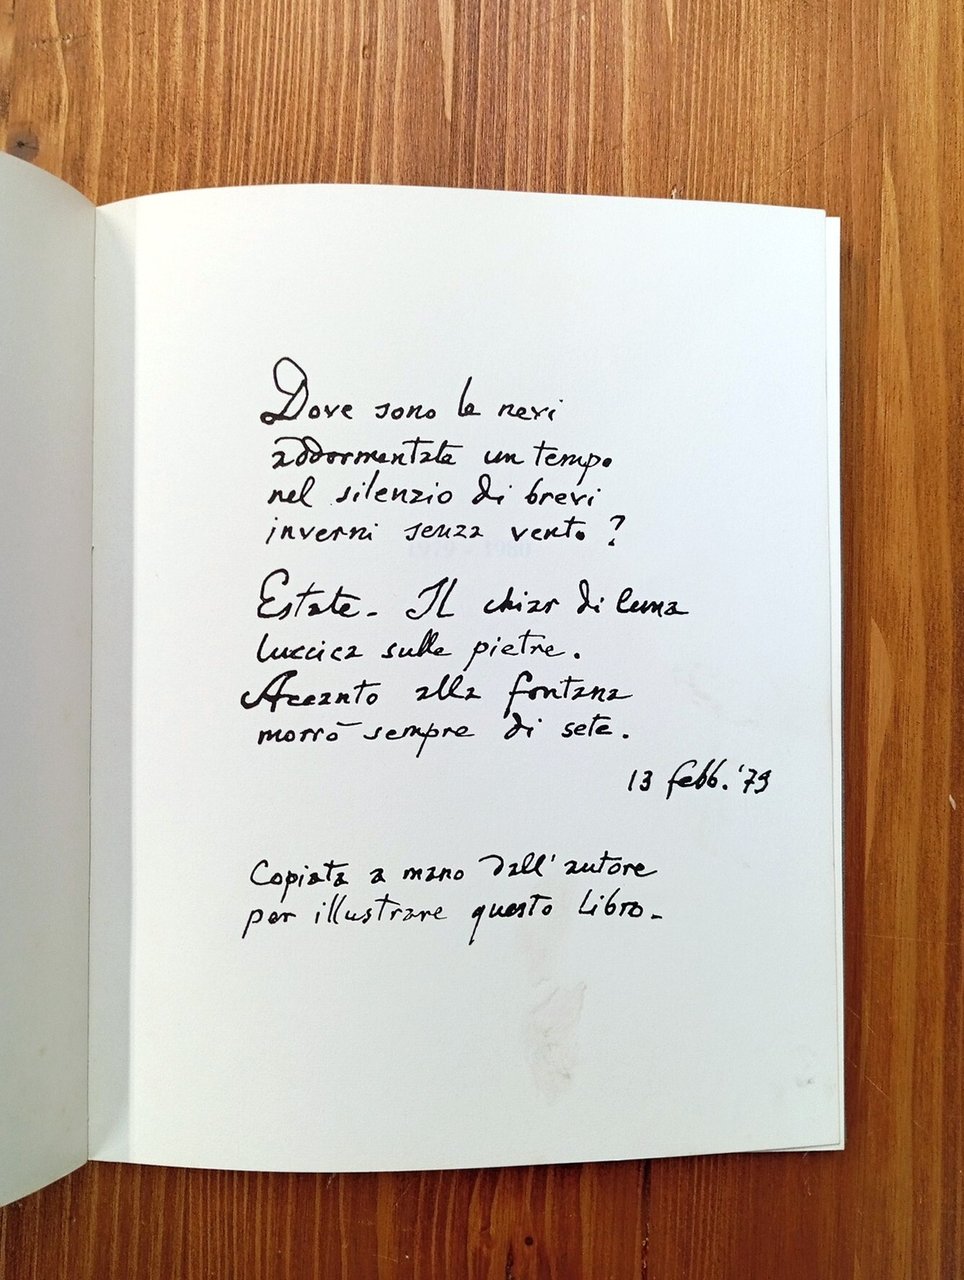 Dove sono le nevi
addormentate un tempo
nel silenzio di brevi
inverni senza vento?
Estate. Il chiar di luna
luccica sulle pietre.
Accanto alla fontana
morrò sempre di sete.
13 febb. '79
Copiata a mano dall'autore
per illustrare questo libro.